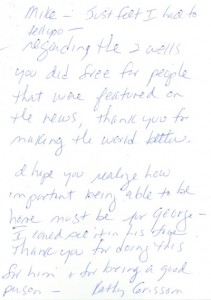 Mike - Just felt I have to
regarding the 2 wells
you did free for people
that were featured on
the news, thank you for
making the world better.
I hope you realize how
important being able to be
home must be for George -
I could see it in his face!
Thank you for doing this
for him & for being a good
person - Kathy